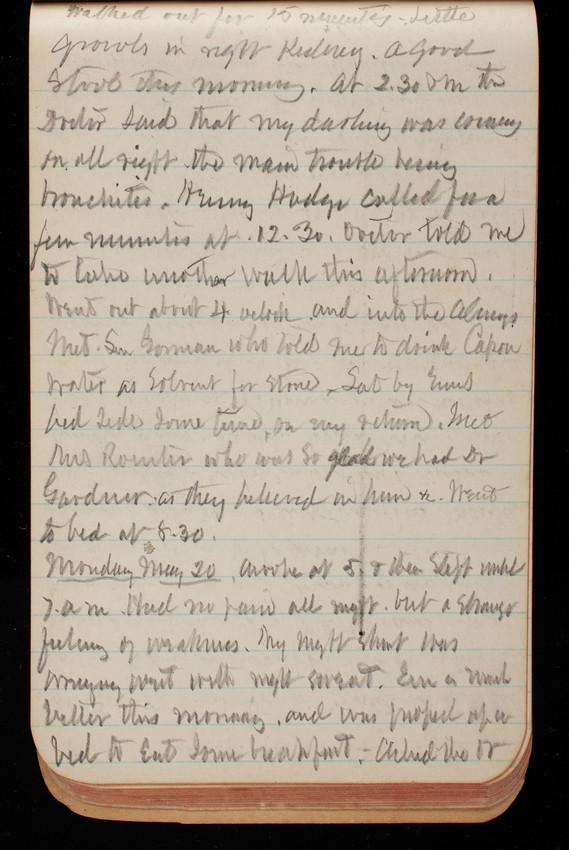 Walked out for 15 minutes - little
growls in right Kidney. A good
stool this morning. At 2.30 P M the
Doctor said that my darling was coming
on all right the main trouble being
bronchitis. Henry Hodge called for a
few minutes at 12.30. Doctor told me
to take another walk this afternoon.
Went out about 4 oclock and into the
Met Gorman who told me to drink Capon
water as solvent for stone. Sat by Ems
bed side some time, on my return. Met
Mrs who was so glad we had Dr
Gardner as they believed in him &. Went
to bed at 8.30.
Monday May 20. Awoke at 5 & then slept until
7. a m. Had no pain all night. but a strange
feeling of weakness. My night shirt was
wringing wet with night sweat. Em is much
better this morning, and was propped up in
bed to eat some breakfast. - Asked the Dr